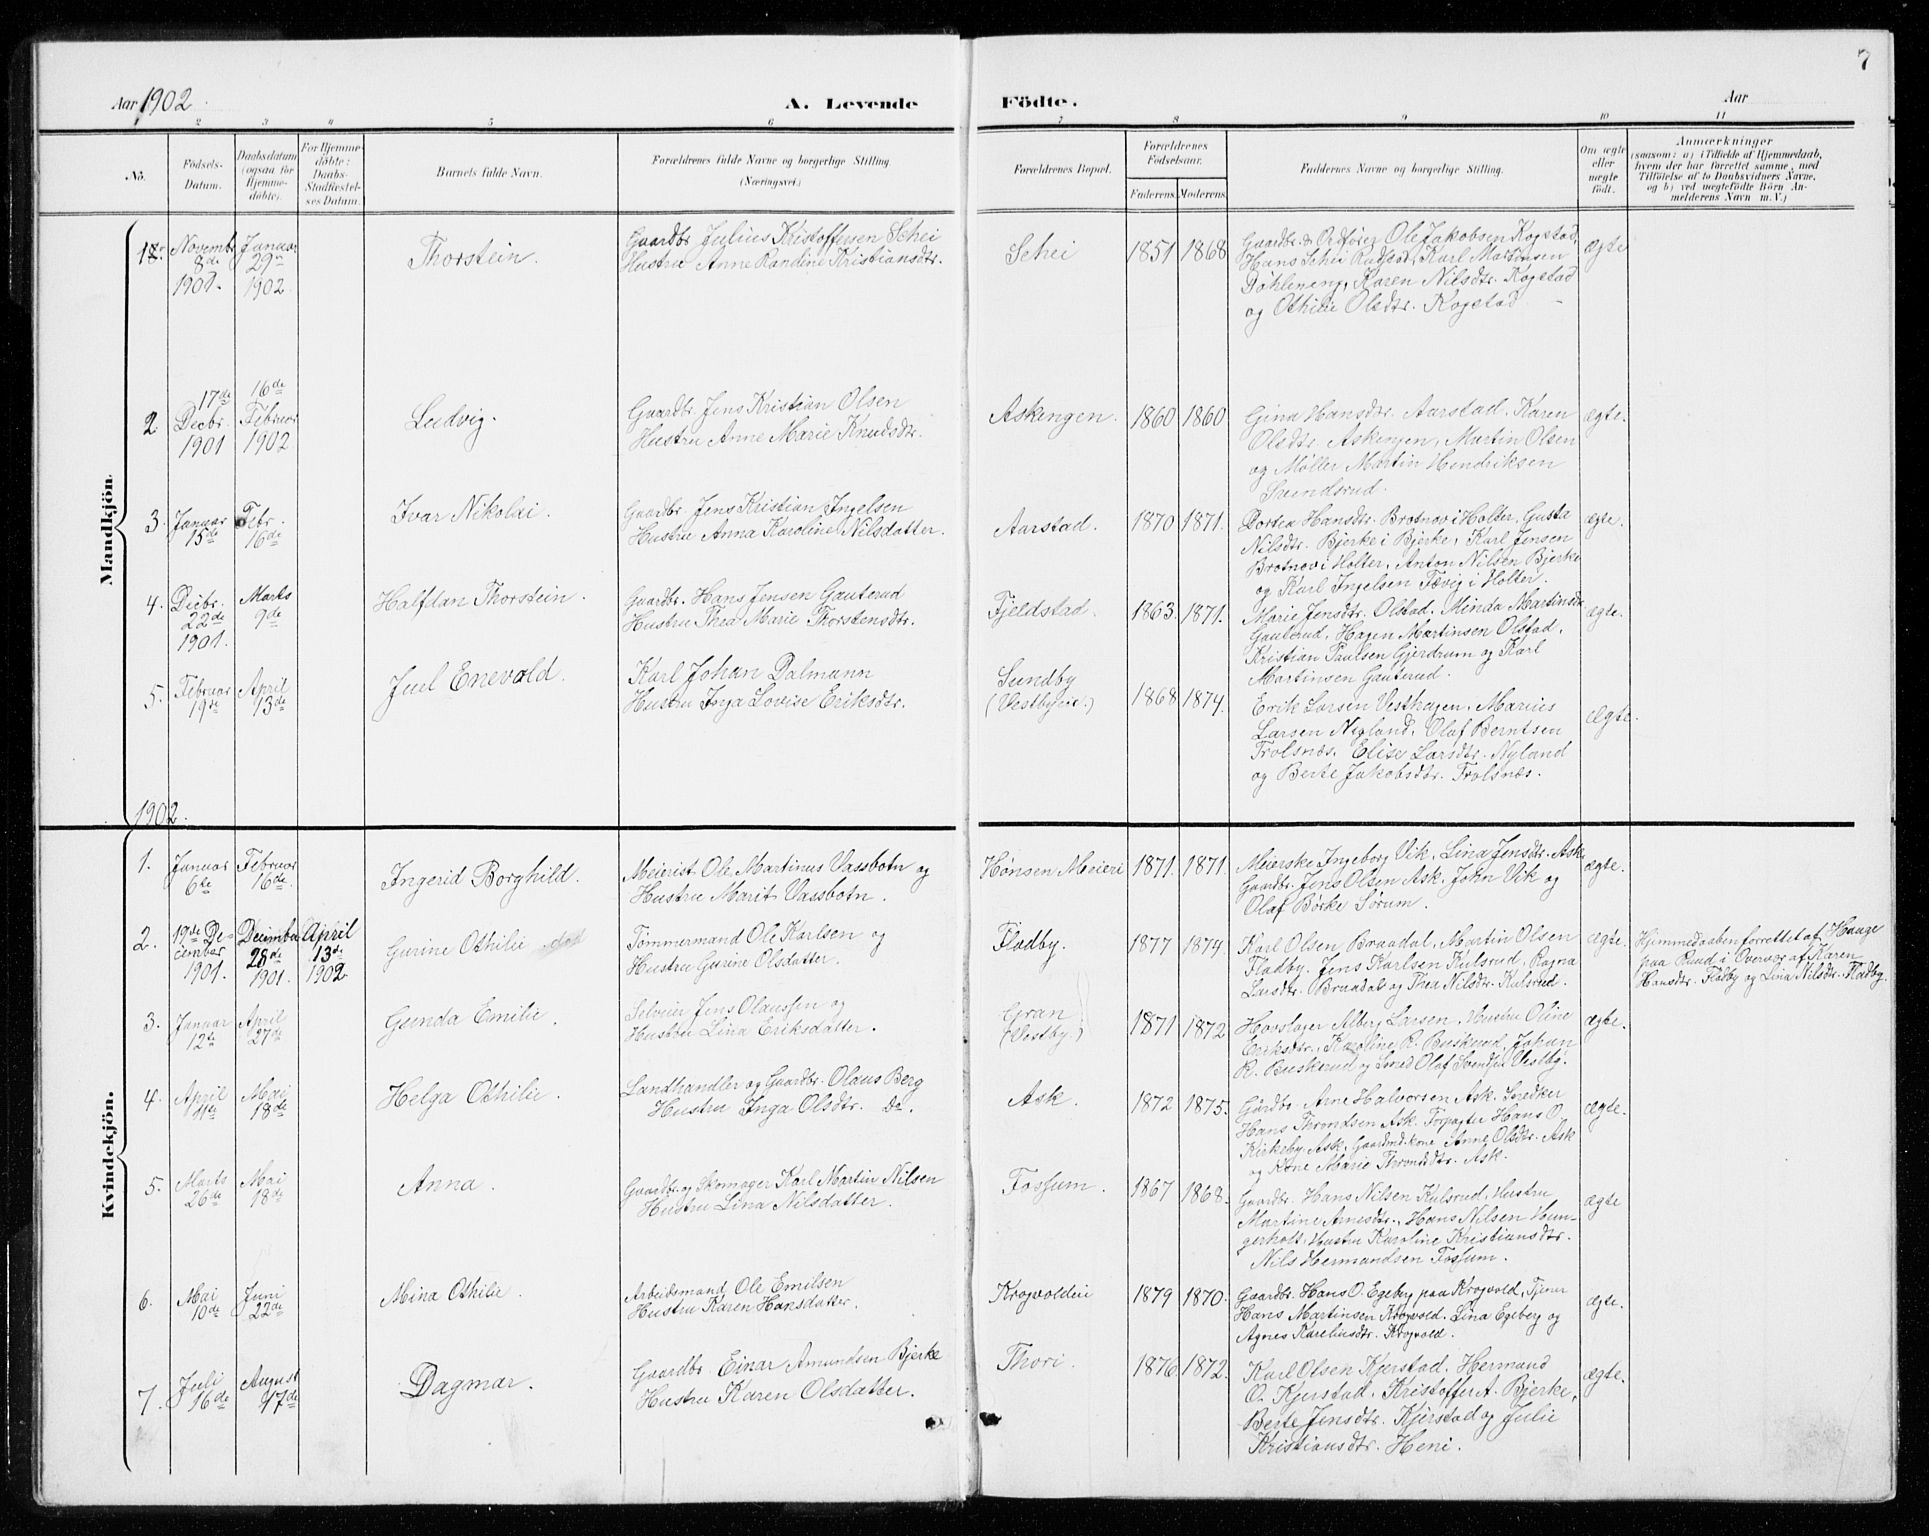 7
Aar 1902
A. Levende
Födte.
Aar
1 2 3 4 5 6 7 8 9 10 11
No.
Födsels-Datum.
Daabsdatum (ogsaa for Hjemmedöbte).
For Hjemmedöbte: Daabs-Stadfæstelses Datum.
Barnets fulde Navn.
Forældrenes fulde Navne og borgerlige Stilling. (Næringsvei.)
Forældrenes Bopæl.
Forældrenes Födselsaar.
Faderens. Moderens.
Faddernes Navne og borgerlige Stilling.
Om ægte eller uægte födt.
Anmærkninger
(saasom: a) i Tilfælde af Hjemmedaab, hvem der har forrettet samme, med Tilföielse af to Daabsvidners Navne, og b) ved uægtefödte Börn Anmelderens Navn m. V.)
Mandkjön.
1. Novembr 8de 1901. Januar 29de 1902. Thorstein.
Gaardbr Julius Kristoffersen Schei
Hustru Anne Randine Kristiansdtr.
Schei 1851 1868
Gaardbr. & Ordfører Ole Jakobsen Kogstad,
Hans Schei Rudsød, Karl Martinsen
Døhleneng, Karen Nilsdtr. Kogstad
og Othilie Olsdtr. Kogstad.
ægte
2 17de Decbr. 1901 16de Februar 1902 Ludvig.
Gaardbr. Jens Kristian Olsen
Hustru Anne Marie Knudsdtr.
Askengen. 1860 1860
Gina Hansdtr. Aarstad. Karen
Olsdtr. Askengen, Martin Olsen
og Møller Martin Hendriksen
Svendsrud.
ægte.
3. Januar 15de Febr. 16de Ivar Nikolai.
Gaardbr. Jens Kristian Ingelsen
Hustru Anna Karoline Nilsdatter.
Aarstad. 1870 1871.
Dortea Hansdtr. Brotnov i Holter, Gusta
Nilsdtr. Bjerke i Bjerke, Karl Jensen
Brotnov i Holter, Anton Nilsen Bjerke
og Karl Ingelsen Tævig i Holter.
ægte.
4. Decbr. 22de 1901. Marts 9de Halfdan Thorstein.
Gaardbr. Hans Jensen Gauterud
Hustru Thea Marie Thorstensdtr.
Fjeldstad. 1863 1871.
Marie Jensdtr. Olstad. Minda Martinsdtr
Gauterud, Hagen Martinsen Olstad,
Kristian Paulsen Gjerdrum og Karl
Martinsen Gauterud.
ægte.
5. Februar 19de April 13de Juel Enevald.
Karl Johan Dalmann
Hustru Inga Lovise Eriksdtr.
Sundby
1868 1874.
Erik Larsen Vesthagen. Marius
Larsen Nyland, Olaf Berntsen
Trolsnæs, Elise Larsdtr. Nyland
og Berte Jakobsdtr. Trolsnæs.
ægte.
1902.
Kvindekjön.
1. Januar 6te Februar 16de Ingerid Borghild.
Meierist Ole Martinus Vassbotn og
Hustru Marit Vassbotn.
Hønsen Meieri 1871. 1871.
Meierske Ingeborg Vik, Lina Jensdtr. Ask
Gaardbr. Jens Olsen Ask. John Vik og
Olaf Børke Sørum.
ægte.
2. 19de December 1901. Decimber 28de 1901. April 13de 1902 Gurine Othilie
Tømmermand Ole Karlsen og
Hustru Gurine Olsdatter.
Fladby. 1877 1874.
Karl Olsen Braadal, Martin Olsen
Fladby. Jens Karlsen Kulsrud, Ragna
Larsdtr. Braadal og Thea Nilsdtr. Kulsrud.
ægte.
Hjemmedaaben forrettet af Hauge
paa Ruud i Overvær af Karen
Hansdtr. Fladby og Lina Nilsdtr. Fladby.
3. Januar 12te April 27de Gunda Emilie.
Selveier Jens Olaussen og
Hustru Lina Eriksdatter.
Gran
(Vestby.)
1871 1872
Hovslager Alberg Larsen, Hustru Oline
Eriksdtr., Karoline R. Buskerud, Johan
R. Buskerud og Smed Olaf Svendsen Vestby.
ægte.
4. April 11te Mai 18de Helga Othilie.
Landhandler og Gaardbr. Olaus Berg
Hustru Inga Olsdtr. Do.
Ask. 1872 1875.
Gårdbr. Arne Halvorsen Ask. Snedker
Hans Throndsen Ask. Forpagter Hans O.
Kirkeby. Ask, Gaardmd.kone Anne Olsdtr. Ask
og Kone Marie Throndsdtr. Ask.
ægte.
5. Marts 26de Mai 18de Anna.
Gaardbr. og Skomager Karl Martin Nilsen
Hustru Lina Nilsdatter.
Fossum. 1867 1868.
Gaardbr. Hans Nilsen Kulsrud, Hustru
Martine Arnesdtr., Hans Nilsen Hun-
gerholt, Hustru Karoline Kristiansdtr.
Nils Hermandsen Fossum.
ægte
6. Mai 10de Juni 22de Mina Othilie.
Arbeidsmand Ole Emilsen
Hustru Karen Hansdatter.
Krogvoldeie 1879 1870.
Gaardbr. Hans O. Egeberg paa Krogvold, Tjener
Hans Martinsen Krogvold. Lina Egeberg og
Agnes Kareliusdtr. Krogvold.
ægte.
7. Juli 16de August 17de Dagmar.
Gaardbr. Einar Amundsen Bjerke
Hustru Karen Olsdatter.
Thori. 1876. 1872.
Karl Olsen Kjerstad. Hermand
O. Kjerstad. Kristoffer A. Bjerke,
Berte Jensdtr. Kjerstad og Julie
Kristiansdtr. Heni.
ægte.